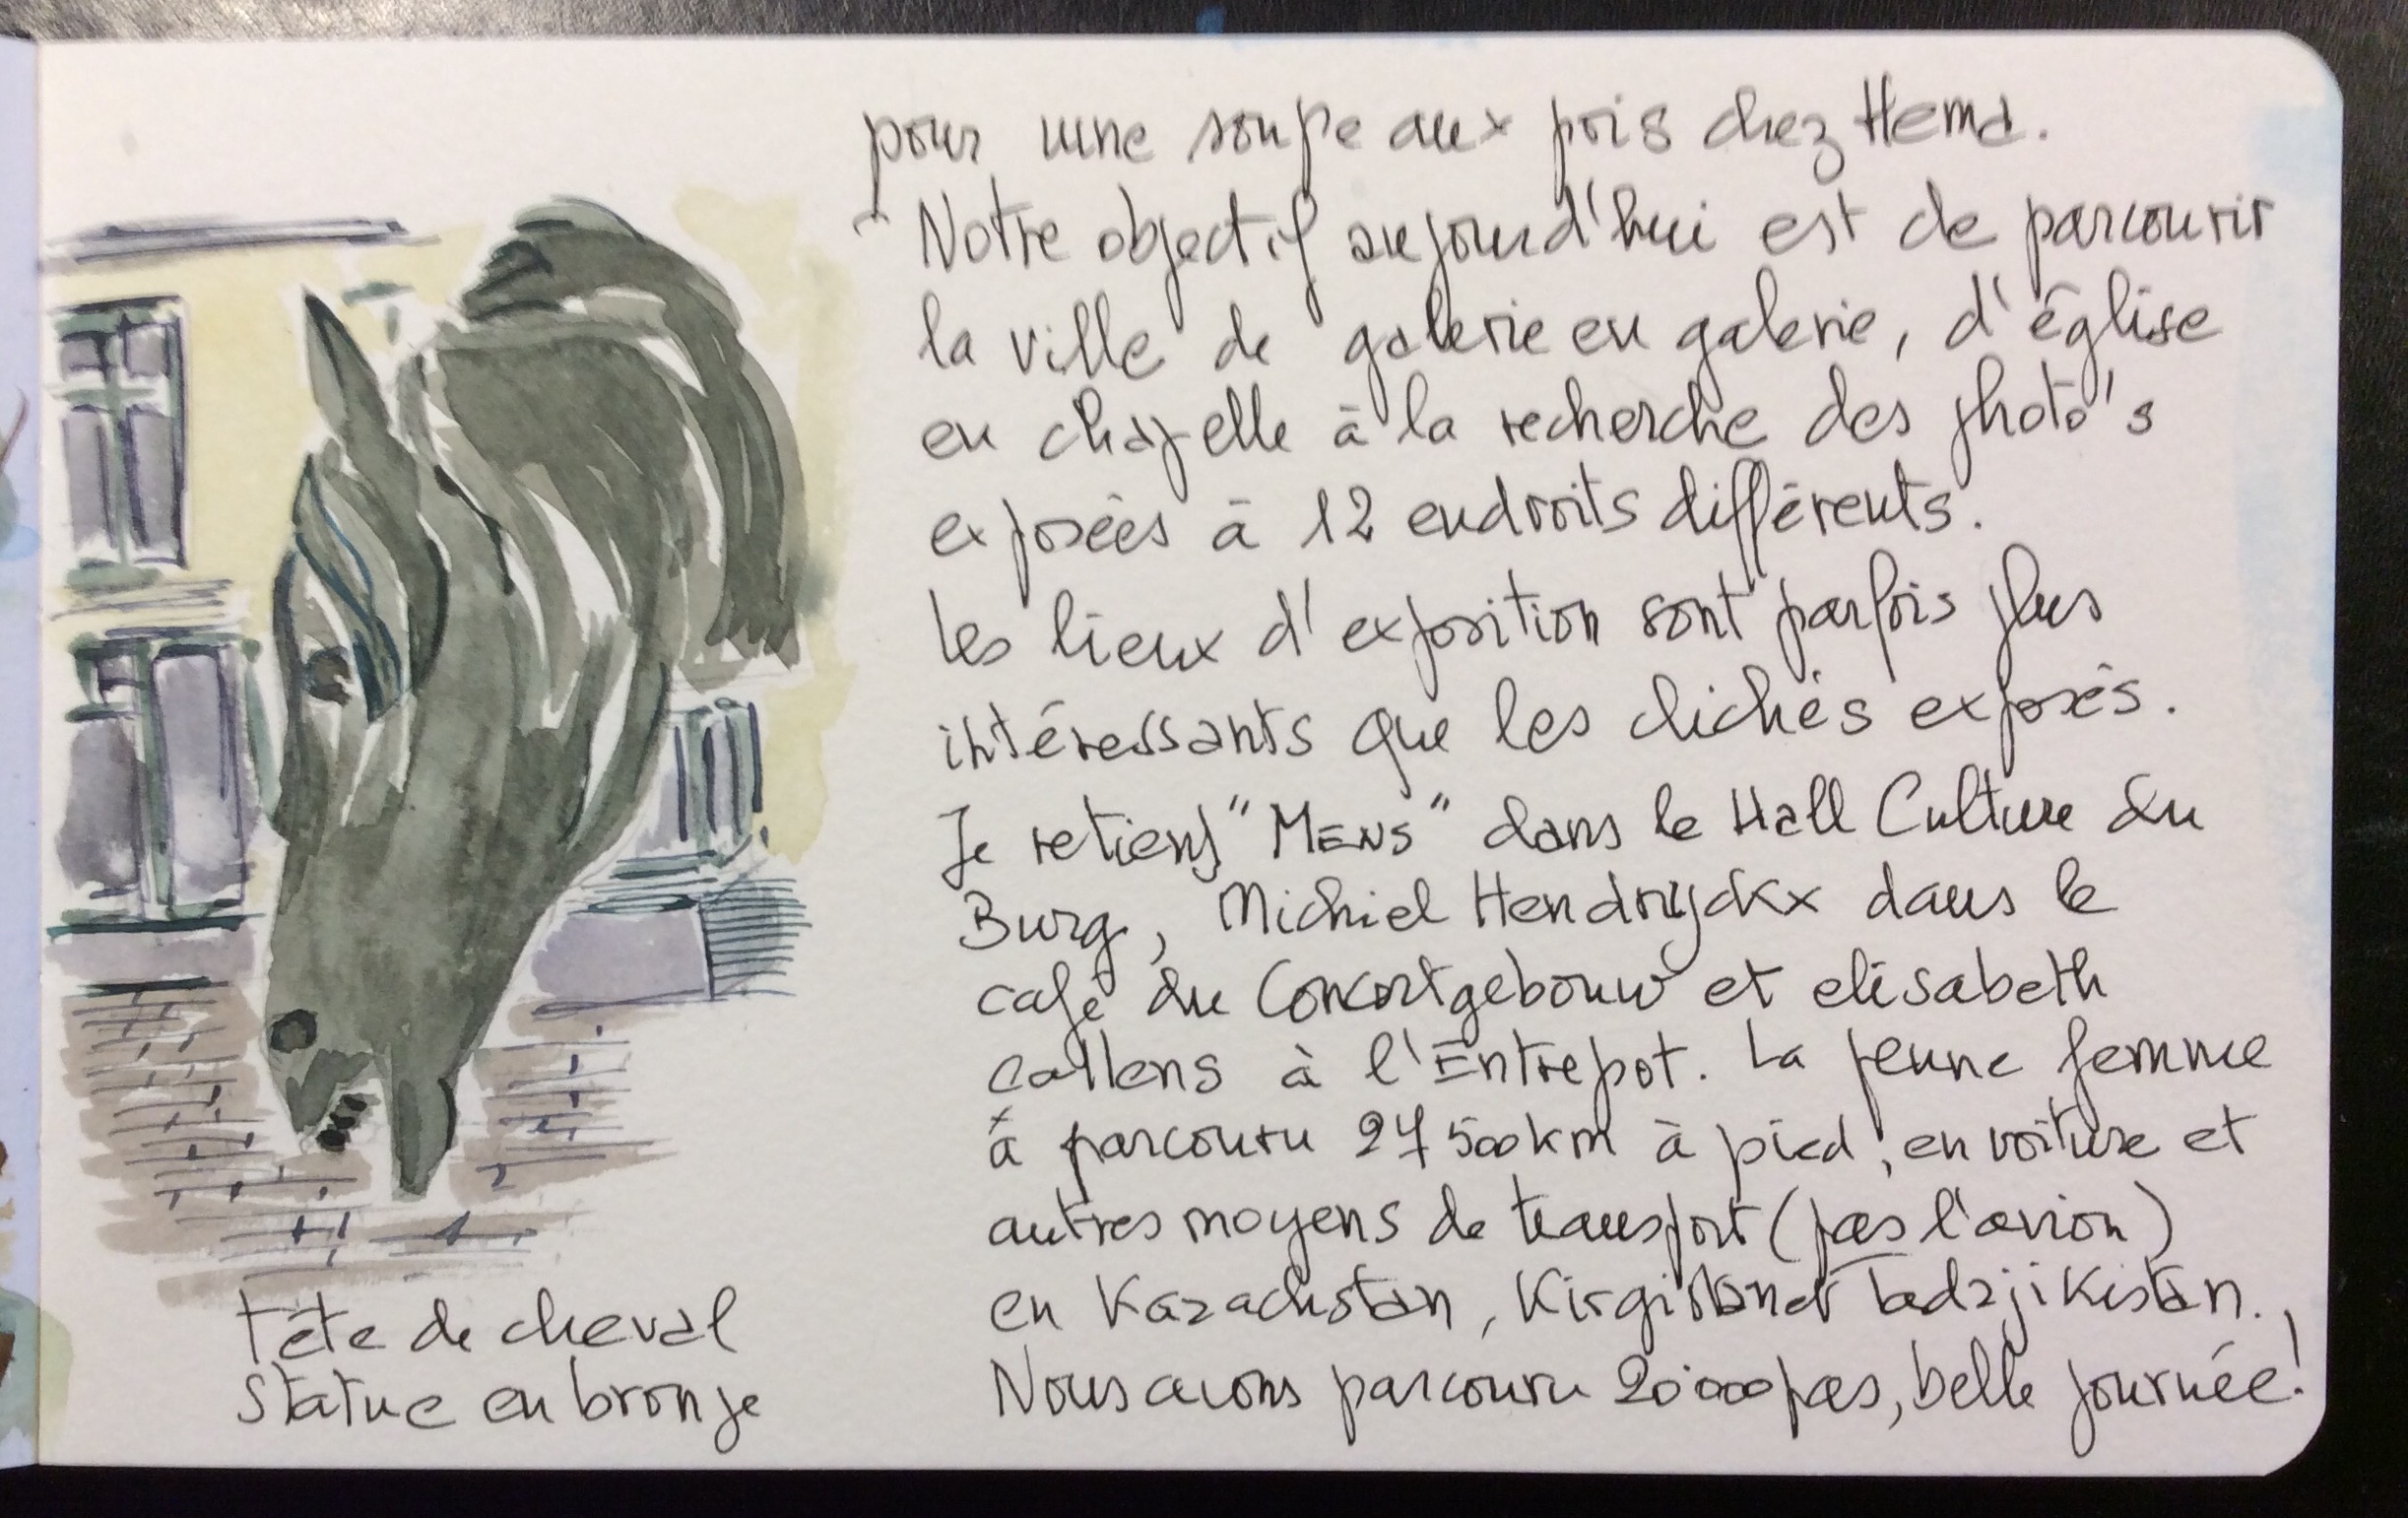 pour une soupe aux pois chez Hema.
Notre objectif aujourd'hui est de parcourir
la ville de galerie en galerie, d'église
en chapelle à la recherche des photo's
exposées à 12 endroits différents.
les lieux d'exposition sont parfois plus
intéressants que les clichés exposés.
Je retiens "MENS" dans le Hall Culture du
Burg, Michiel Hendryckx dans le
café du Concertgebouw et elisabeth
callens à l'Entrepot. La jeune femme
à parcouru 27500km à pied, en voiture et
autres moyens de transport (pas l'avion)
en Kazachstan, Kirgistan et Tadzjikistan.
Nous avons parcouru 20'000 pas, belle journée!
tête de cheval
statue en bronze